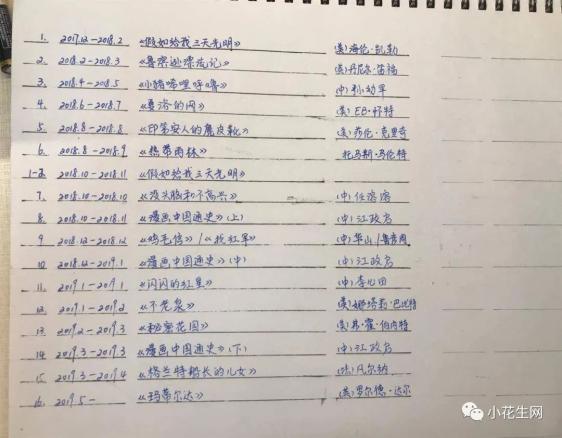 1. 2017.12-2018.2 《假如给我三天光明》 (美)海伦·凯勒
2. 2018.2-2018.3 《鲁滨逊漂流记》 (英)丹尼尔·笛福
3. 2018.4-2018.5 《小猪唏哩呼噜》 (中)孙幼军
4. 2018.6-2018.7 《夏洛的网》 (美)EB·怀特
5. 2018.8-2018.8 《印第安人的鹿皮靴》 (美)莎伦·克里奇
6. 2018.8-2018.9 《热带雨林》 托马斯·马伦特
1-2 2018.10-2018.11 《假如给我三天光明》
7. 2018.10-2018.10 《没头脑和不高兴》 (中)任溶溶
8. 2018.10-2018.11 《漫画中国通史》(上) (中)江政启
9 2018.12-2018.12 《鸡毛信》/《找红军》 (中)华山/鲁彦周
10 2018.12-2019.1 《漫画中国通史》(中) (中)江政启
11. 2019.1-2019.1 《闪闪的红星》 (中)李心田
12. 2019.1-2019.2 《不老泉》 (美)娜塔莉·巴比特
13. 2019.2-2019.3 《秘密花园》 (美)弗·霍·伯内特
14. 2019.3-2019.3 《漫画中国通史》(下) (中)江政启
15. 2019.3-2019.4 《格兰特船长的儿女》 (法)凡尔纳
16. 2019.5- 《玛蒂尔达》 (英)罗尔德·达尔
小花生网